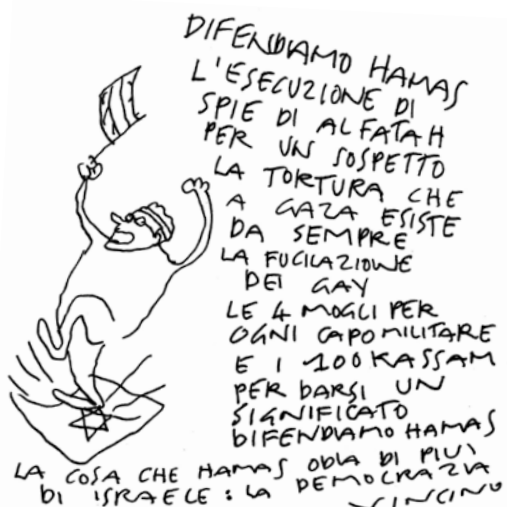 DIFENDIAMO HAMAS
L'ESECUZIONE DI
SPIE DI AL FATAH
PER UN SOSPETTO
LA TORTURA CHE
A GAZA ESISTE
DA SEMPRE
LA FUCILAZIONE
DEI GAY
LE 4 MOGLI PER
OGNI CAPO MILITARE
E I 100 KASSAM
PER DARSI UN
SIGNIFICATO
DIFENDIAMO HAMAS
LA COSA CHE HAMAS ODIA DI PIU'
DI ISRAELE: LA DEMOCRAZIA
VINCINO